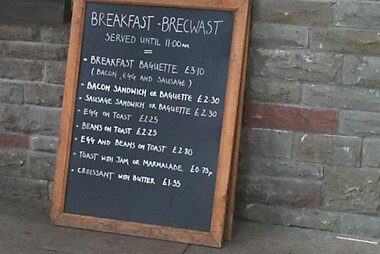 BREAKFAST - BRECWAST
SERVED UNTIL 11:00am
- BREAKFAST BAGUETTE £3.10
(BACON, EGG AND SAUSAGE)
- BACON SANDWICH OR BAGUETTE £2.30
- SAUSAGE SANDWICH OR BAGUETTE £2.30
- EGG ON TOAST £2.25
- BEANS ON TOAST £2.25
- EGG AND BEANS ON TOAST £2.80
- TOAST WITH JAM OR MARMALADE £0.75p
- CROISSANT WITH BUTTER £1.55